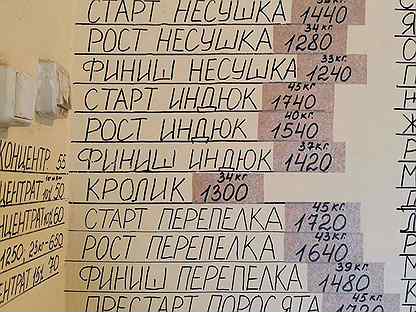 СТАРТ НЕСУШКА 1440
РОСТ НЕСУШКА 34кг. 1280
ФИНИШ НЕСУШКА 33кг. 1240
СТАРТ ИНДЮК 45кг. 1740
РОСТ ИНДЮК 40кг. 1540
ФИНИШ ИНДЮК 37кг. 1420
КРОЛИК 34кг. 1300
СТАРТ ПЕРЕПЕЛКА 45кг. 1720
РОСТ ПЕРЕПЕЛКА 43кг. 1640
ФИНИШ ПЕРЕПЕЛКА 39кг. 1480
ПРЕСТАРТ ПОРОСЯТА 45кг.
КОНЦЕНТР 55
ЦЕНТРАТ 50
НЦЕНТРАТ 60
1250, 25кг-650
ЕНТРАТ 15% 70